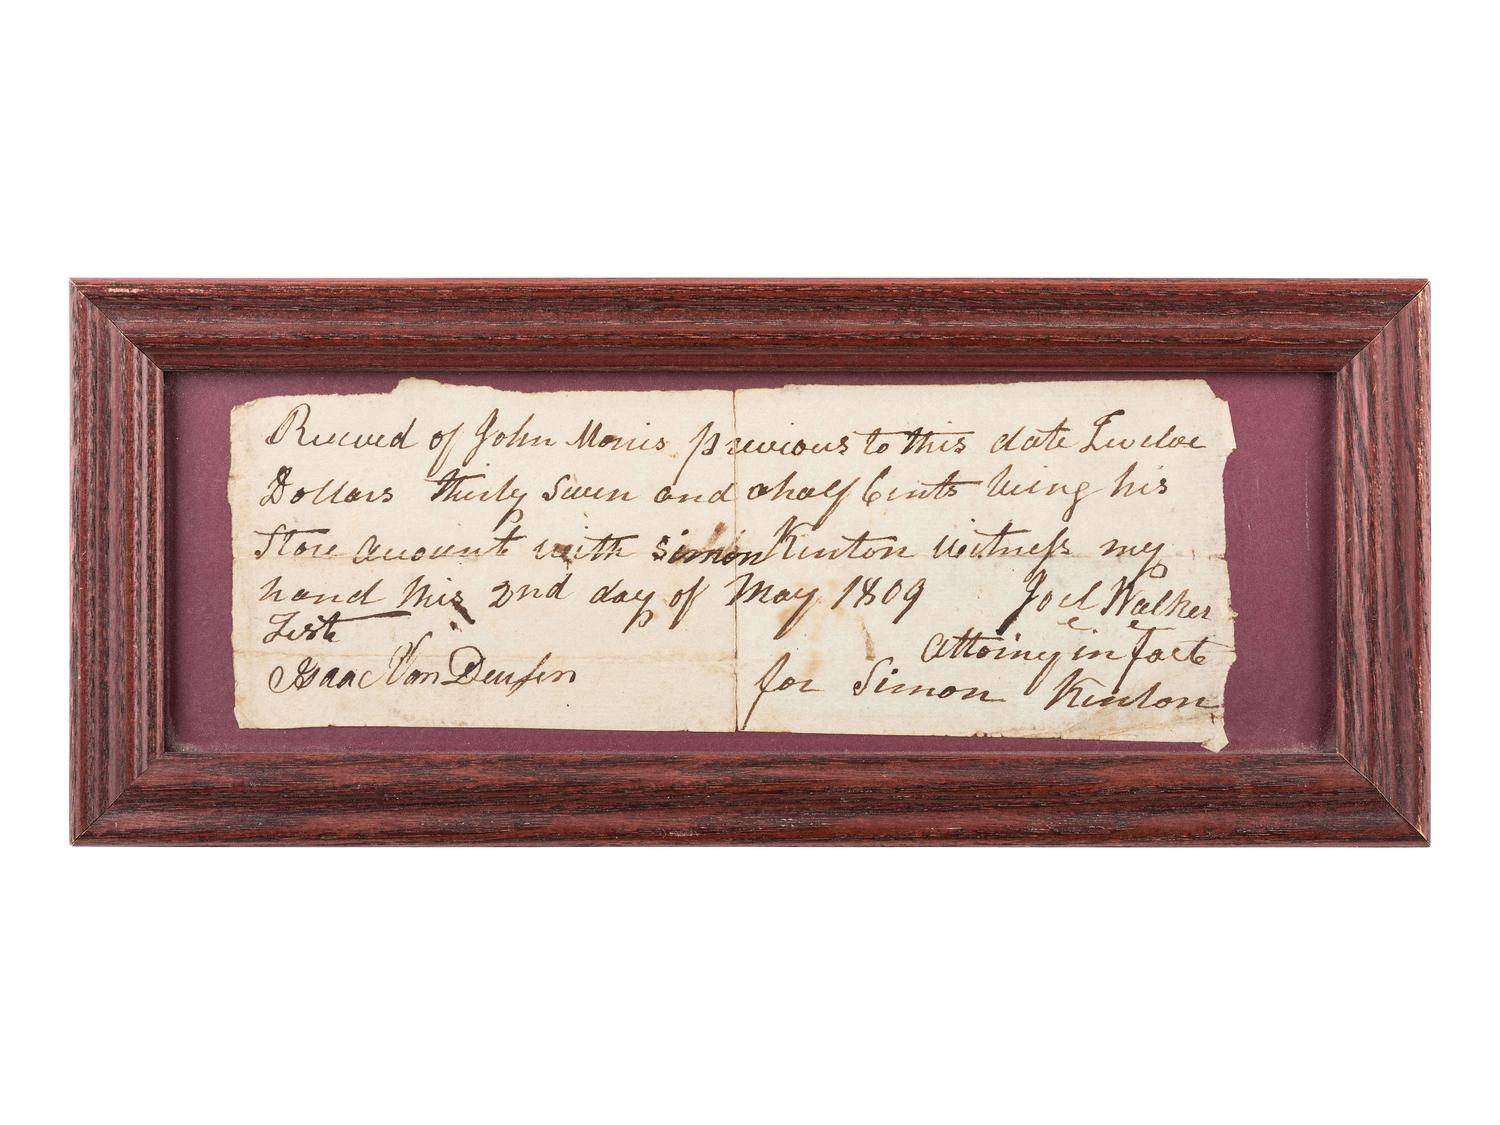 Received of John Morris previous to this date Twelve
Dollars thirty Seven and ahalf Cents being his
Store account with Simon Kenton witness my
hand this 2nd day of May 1809 Joel Walker
Teste attorney in fact
Isaac Van Deusen for Simon Kenton